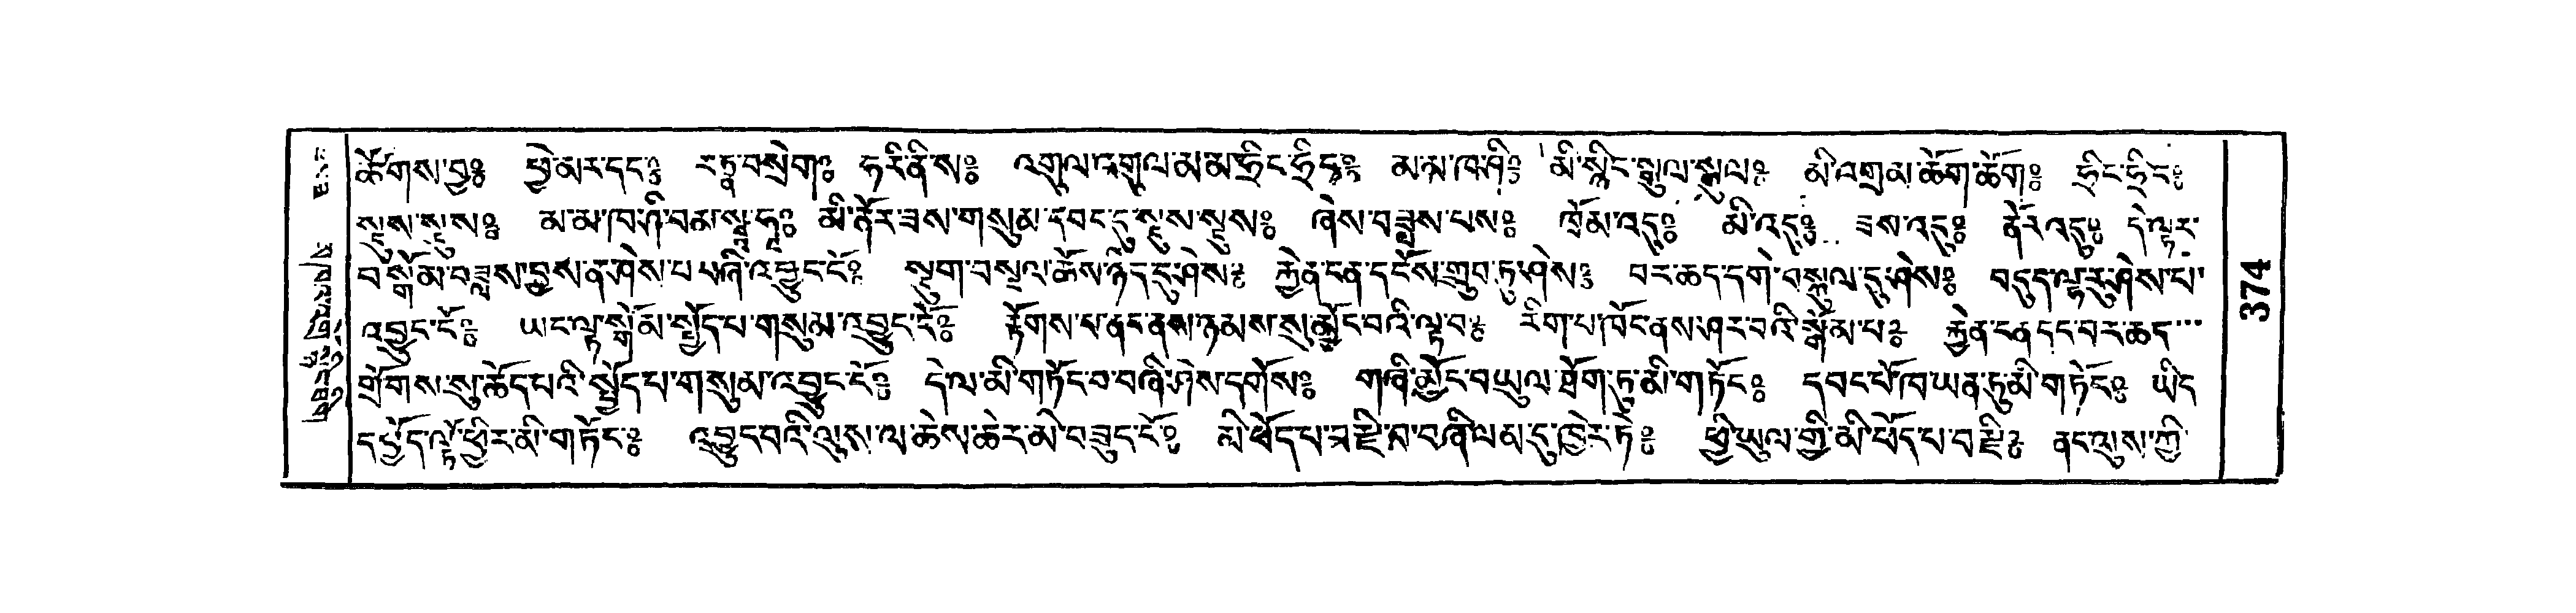 ཚོགས་བྱ༔ ཕྱེ་མར་དང༔ རཏྣ་བསྲེག༔ ཧ་རི་ནི་ས༔ འགུལ་འགུལ་མ་མ་ཧྲིང་ཧྲིང༔ མ་མ་ཁ་ཤི༔ མི་སྙིང་སྐུལ་སྐུལ༔ མི་འགྲམ་ཚོག་ཚོག༔ ཧྲིང་ཧྲིང༔
སྡུས་སྡུས༔ མ་མ་ཁ་ཤི་བམ་སྭཱ་ཧཱ༔ མི་ནོར་ཟས་གསུམ་དབང་དུ་སྡུས་སྡུས༔ ཞེས་བཟླས་པས༔ ཁྲོམ་འདུ༔ མི་འདུ༔ ཟས་འདུ༔ ནོར་འདུ༔ དེ་ལྟར་
བསྒོམ་བཟླས་བྱས་ན་ཤེས་པ་བཞི་འབྱུང་ངོ༔ སྡུག་བསྔལ་ཆོས་ཉིད་དུ་ཤེས༔ རྐྱེན་ངན་དངོས་གྲུབ་ཏུ་ཤེས༔ བར་ཆད་དགེ་བསྐུལ་དུ་ཤེས༔ བདུད་ལྷ་རུ་ཤེས་པ་
འབྱུང་ངོ༔ ཡང་ལྟ་སྒོམ་སྤྱོད་པ་གསུམ་འབྱུང་ངོ༔ རྟོགས་པ་ནང་ནས་ཉམས་སུ་མྱོང་བའི་ལྟ་བ༔ རིག་པ་ཁོང་ནས་ཤར་བའི་སྒོམ་པ༔ རྐྱེན་ངན་དང་བར་ཆད་
གྲོགས་སུ་ཆོད་པའི་སྤྱོད་པ་གསུམ་འབྱུང་ངོ༔ དེ་ལ་མི་གཏོང་བ་བཞི་ཤེས་དགོས༔ གཞི་མྱོང་བ་ཡུལ་ཐོག་ཏུ་མི་གཏོང༔ དབང་པོ་ཁ་ཡན་ཏུ་མི་གཏོང༔ ཡིད་
དཔྱོད་ལྟོ་ཕྱིར་མི་གཏོང༔ འབྱུང་བའི་ལུས་ལ་ཆེས་ཆེར་མི་བཟུང་ངོ༔ མི་ཕོད་པ་རྫི་བ་བཞི་ལམ་དུ་ཁྱེར་ཏེ༔ ཕྱི་ཡུལ་གྱི་མི་ཕོད་པ་བརྫི༔ ནང་ལུས་ཀྱི་